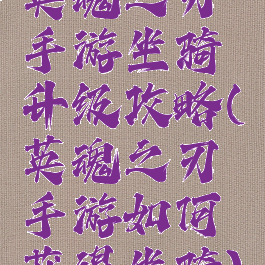 英魂之刃
手游坐骑
升级攻略(
英魂之刃
手游如何
获得坐骑)